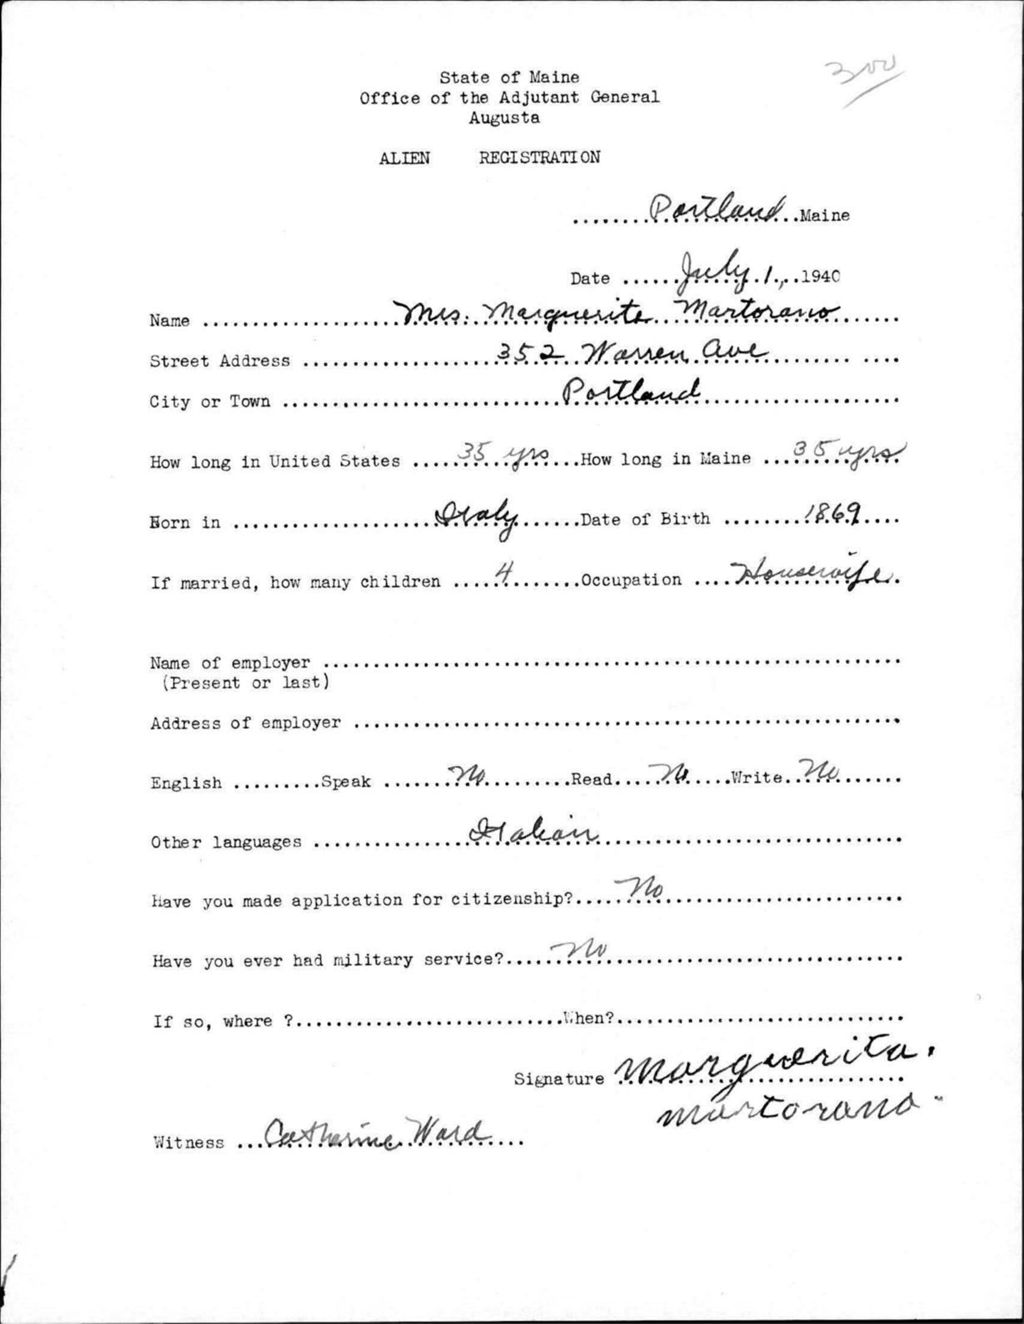 300
State of Maine
Office of the Adjutant General
Augusta
ALIEN REGISTRATION
........Portland..Maine
Date ......July.1.,..1940
Name ...................Mrs. Marguerite Martorano.......
Street Address ...................352 Warren Ave......... ....
City or Town ...........................Portland....................
How long in United States .....35 yrs...How long in Maine ...35 yrs.
Born in ....................Italy.......Date of Birth ........1869....
If married, how many children ....4........Occupation ....Housewife.
Name of employer ..........................................................
(Present or last)
Address of employer .......................................................
English .........Speak .......No.........Read....No.....Write..No......
Other languages ................Italian...............................
Have you made application for citizenship?.....No........................
Have you ever had military service?.....No..............................
If so, where ?...........................When?.............................
Signature Marguerita.
Martorano
Witness ...Catherine Ward....